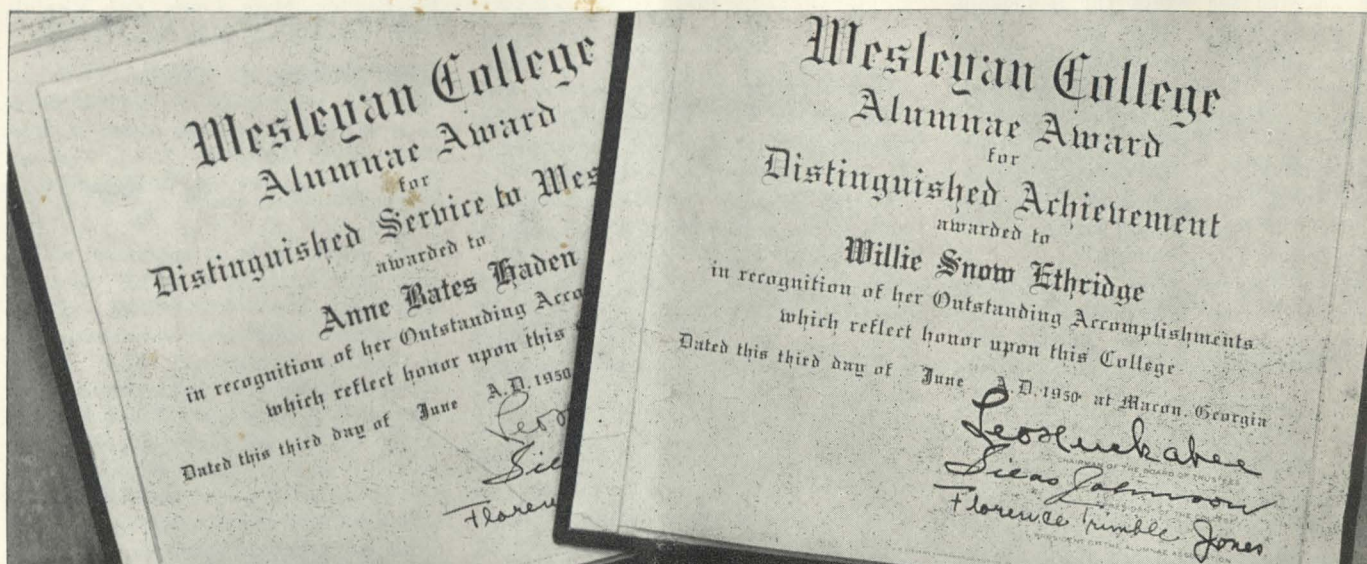 Wesleyan College
Alumnae Award
for
Distinguished Service to Wes
awarded to
Anne Bates Haden
in recognition of her Outstanding Acco
which reflect honor upon this
Dated this third day of June A.D. 1950
Leo
Sil
Floren
Wesleyan College
Alumnae Award
for
Distinguished Achievement
awarded to
Willie Snow Ethridge
in recognition of her Outstanding Accomplishments
which reflect honor upon this College
Dated this third day of June A.D. 1950 at Macon, Georgia
Leo Huckabee
CHAIRMAN OF THE BOARD OF TRUSTEES
Silas Johnson
Florence Trimble Jones
PRESIDENT OF THE ALUMNAE ASSOCIATION